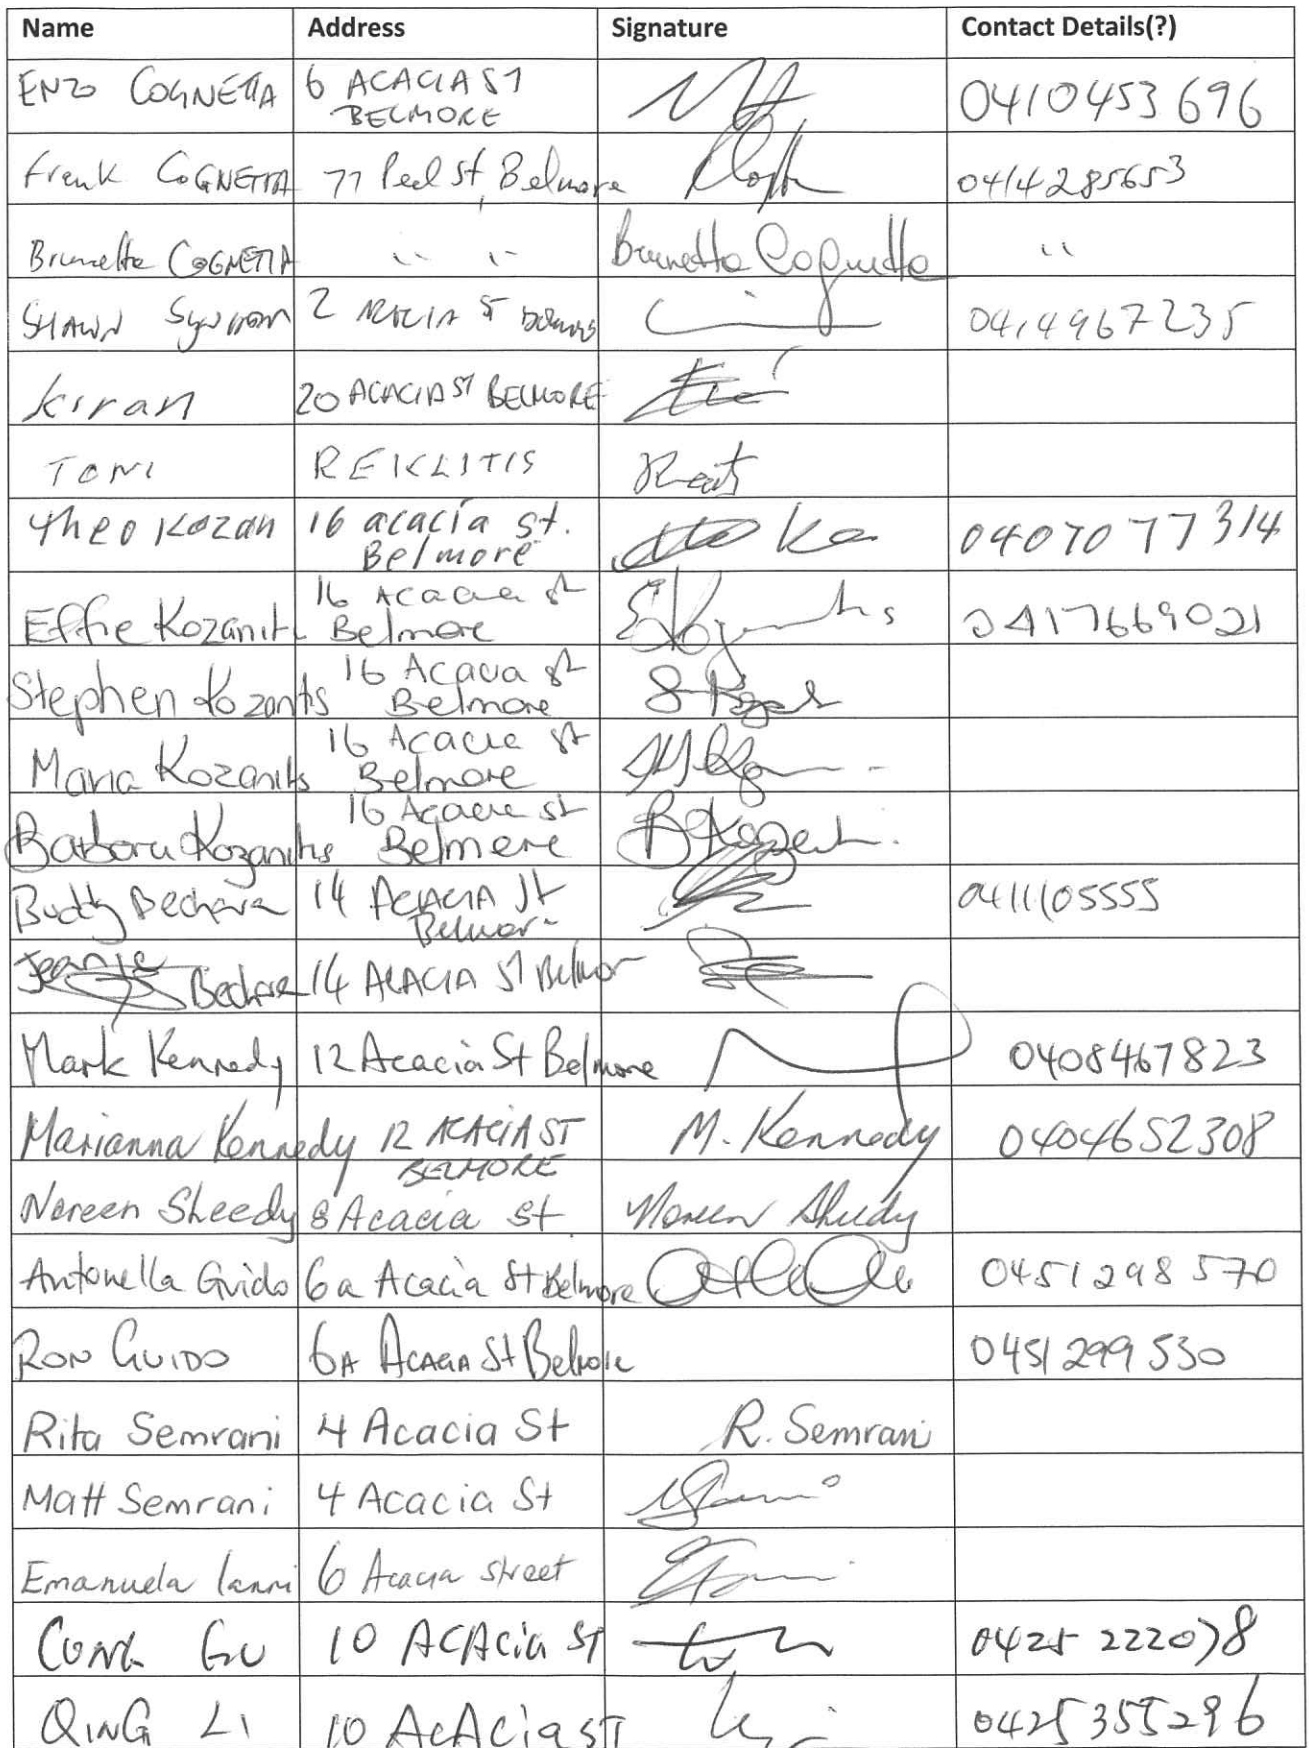 Name Address Signature Contact Details(?)
ENZO COGNETTA 6 ACACIA ST 0410453696
BELMORE
Frank COGNETTA 77 Peel St, Belmore 0414285653
Brunetta COGNETTA " " Brunetta Cognetta "
SHAWN 2 ACACIA ST 0414967235
Kiran 20 ACACIA ST BELMORE
TONI REKLITIS
Theo Kozan 16 acacia st. 0407077314
Belmore
Effie Kozanit 16 Acacia st 0417669021
Belmore
Stephen Kozanitis 16 Acacia st
Belmore
Maria Kozanitis 16 Acacia st
Belmore
Barbara Kozanitis 16 Acacia st
Belmore
Buddy Bechara 14 ACACIA St 0411105555
Belmore
Jeanie Bechara 14 ACACIA ST Belmor
Mark Kennedy 12 Acacia St Belmore 0408467823
Marianna Kennedy 12 ACACIA ST M. Kennedy 0404652308
BELMORE
Noreen Sheedy 8 Acacia st Noreen Sheedy
Antonella Guido 6a Acacia St Belmore 0451298570
RON GUIDO 6A ACACIA St Belmore 0451299530
Rita Semrani 4 Acacia St R. Semrani
Matt Semrani 4 Acacia St
Emanuela Ianni 6 Acacia street
CONG GU 10 ACAcia ST 0425 222078
QING LI 10 AcAcia ST 0425355296